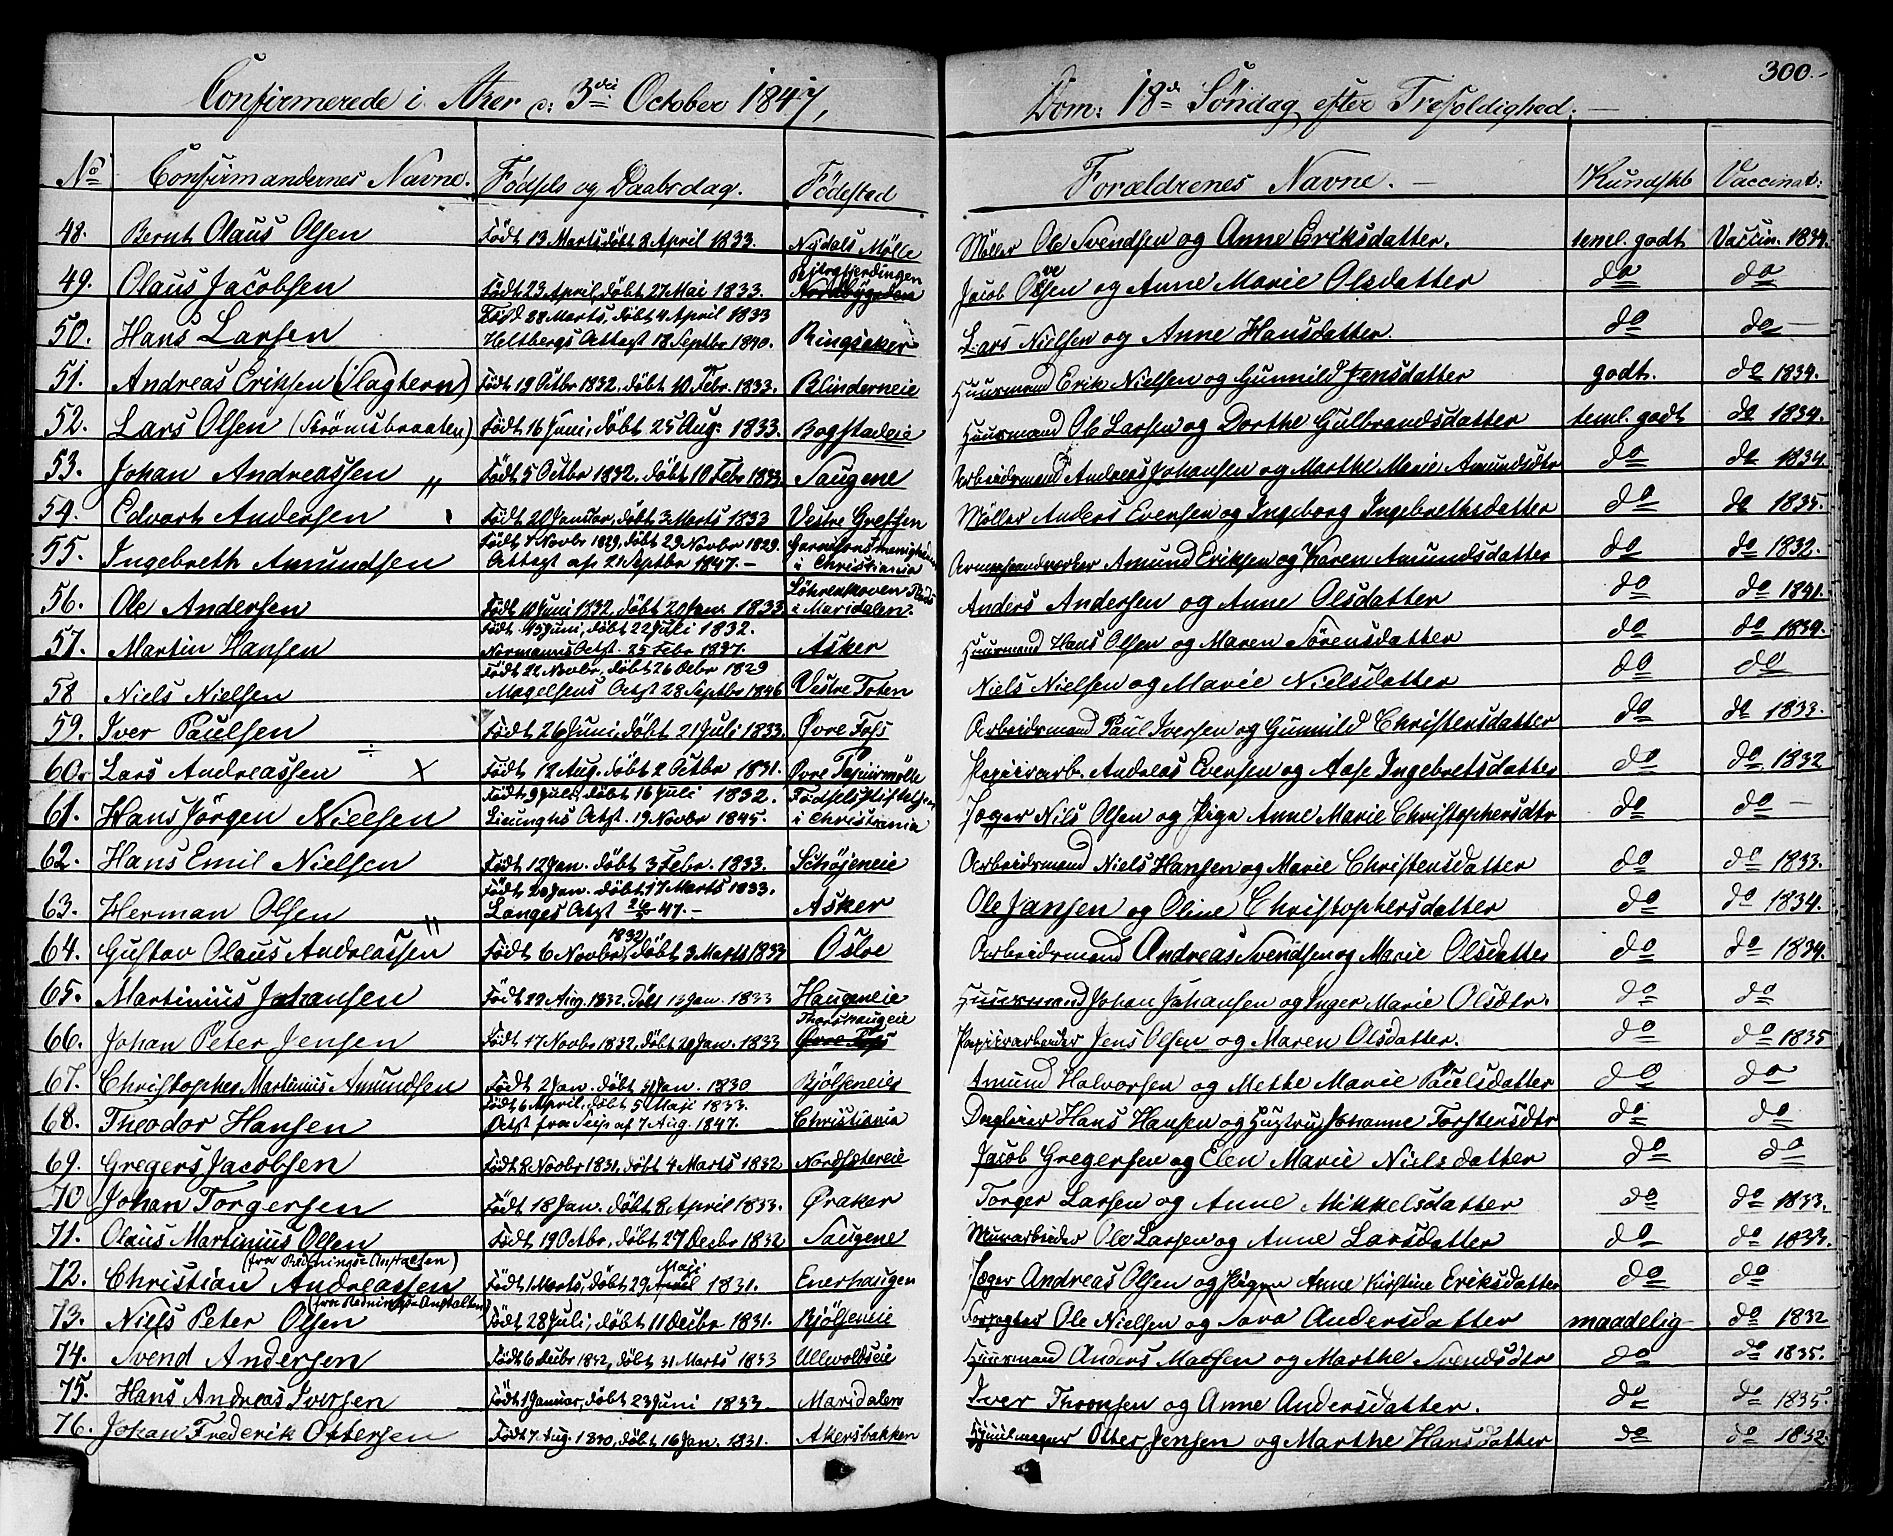 300.
Confirmerede i Aker d: 3die October 1847, Dom: 18de Søndag efter Trefoldighed.
No Confirmandernes Navne. Fødsels og Daabsdag. Fødested Forældrenes Navne. Kundskb Vaccinat:
48. Bernt Olaus Olsen Født 13 Marts, døbt 8 April 1833. Nydals Mølle Møller Ole Svendsen og Anne Eriksdatter. teml. godt Vaccin. 1834.
49. Olaus Jacobsen Født 23 April, døbt 27 Mai 1833. Bjergfjerdingen Jacob Olsen og Anne Marie Olsdatter do do
50. Hans Larsen Født 28 Marts, døbt 4 April 1833 Ringsaker Lars Nielsen og Anne Hansdatter. do do
Heltbergs Attest 18 Septbr 1840.
51. Andreas Eriksen (Slagtern) Født 19 Octbr 1832, døbt 10 Febr. 1833. Blinderneie Huusmand Erik Nielsen og Gunnild Jensdatter godt. do 1834.
52. Lars Olsen (Strømsbraaten) Født 16 Juni, døbt 25 Aug. 1833. Bogstadeie Huusmand Ole Larsen og Dorthe Gulbrandsdatter teml. godt do 1834.
53. Johan Andreassen " Født 5 Octbr 1832, døbt 10 Febr 1833 Saugene Arbeidsmand Andreas Johansen og Marthe Marie Amundsdtr do do 1834.
54. Edvart Andersen Født 20 Januar, døbt 3 Marts 1833 Vestre Grefsen Møller Anders Evensen og Ingeborg Ingebrethsdatter do do 1835.
55. Ingebreth Amundsen Født 4 Novbr 1829, døbt 29 Novbr 1829. Garnisonsmenigheden i Christiania Amund Eriksen og Karen Amundsdatter do do 1832.
Attest af 21 Septbr 1847.
56. Ole Andersen Født 10 Juni 1832, døbt 20 Jan. 1833 i Maridalen. Anders Andersen og Anne Olsdatter do do 1841.
57. Martin Hansen Født 15 Juni, døbt 22 Juli 1832. Asker Huusmand Hans Olsen og Maren Sørensdatter do do 1839.
Normanns Attst. 25 Febr 1847.
58 Niels Nielsen Født 22 Novbr, døbt 26 Debr 1829 Vestre Toten Niels Nielsen og Marie Nielsdatter do do
Magelsens Attst 28 Septbr 1846
59. Iver Paulsen Født 26 Juni, døbt 21 Juli 1833. Øvre Foss Arbeidsmand Paul Iversen og Gunnild Christensdatter do do 1833.
60. Lars Andreassen ÷ X Født 12 Aug. døbt 2 Octbr 1831. Øvre Papiirmølle Papiirarb. Andreas Evensen og Aase Ingebretsdatter do do 1832
61. Hans Jørgen Nielsen Født 9 Juli, døbt 16 Juli 1832. Fødselsstiftelsen i Christiania Jæger Nils Olsen og Pige Anne Marie Christophersdtr do do
Attst. 19 Novbr 1845.
62. Hans Emil Nielsen Født 12 Jan. døbt 3 Febr. 1833. Schøjeneie Arbeidsmand Niels Hansen og Marie Christensdatter do do 1833.
63. Herman Olsen Født 20 Jan. døbt 17 Marts 1833. Asker Ole Jansen og Oline Christophersdatter do do 1834.
Langes Attst 47.
64. Gustav Olaus Andreassen Født 6 Novbr 1832, døbt 3 Marts 1833 Oslo Arbeidsmand Andreas Svendsen og Marie Olsdatter do do 1834.
65. Martinius Johansen Født 29 Aug. 1832, døbt 13 Jan. 1833 Haugeneie Huusmand Johan Johansen og Inger Marie Olsdtr. do do
66. Johan Peter Jensen Født 17 Novbr 1832, døbt 20 Jan. 1833 Thorshaugeie Øvre Foss Papiirarbeider Jens Olsen og Maren Olsdatter. do do 1835
67. Christopher Martinius Amundsen Født 2 Jan. døbt 31 Jan. 1830 Bjølseneie Amund Halvorsen og Methe Marie Paulsdatter do do
68. Theodor Hansen Født 6 April, døbt 5 Maji 1833. Christiania Hans Hansen og Hustru Johanne Torstensdtr do do
Attst fra af 7 Aug. 1847.
69. Gregers Jacobsen Født 8 Novbr 1831, døbt 4 Marts 1832 Nordsætereie Jacob Gregersen og Elen Marie Nielsdatter do do
70 Johan Torgersen Født 18 Jan. døbt 8 April 1833. Øraker Torger Larsen og Anne Mikkelsdatter do do 1833.
71. Olaus Martinius Olsen Født 19 Octbr, døbt 27 Decbr 1832 Saugene Murarbeider Ole Larsen og Anne Larsdatter do do 1833.
72. Christian Andreassen (fra Rednings-Anstalten) Født 1 Marts, døbt 29 Maji 1831. Enerhaugen Jæger Andreas Olsen og Pigen Anne Kirstine Eriksdatter do do
73. Niels Peter Olsen (fra Rednings-Anstalten) Født 28 Juli, døbt 11 Decbr 1831. Bjølseneie Ole Nielsen og Sara Andersdatter maadelig do 1832
74. Svend Andersen Født 6 Decbr 1832, døbt 31 Marts 1833 Ullevoldseie Huusmand Anders Madsen og Marthe Svendsdtr do do 1835.
75. Hans Andreas Iversen Født 1 Januar, døbt 23 Juni 1833 Maridalen Iver Thronsen og Anne Andersdatter. do do 1835.
76. Johan Frederik Ottersen Født 7 Aug. 1830, døbt 16 Jan. 1831. Akersbakken Hjuulmager Otter Jensen og Marthe Hansdatter do do 1832